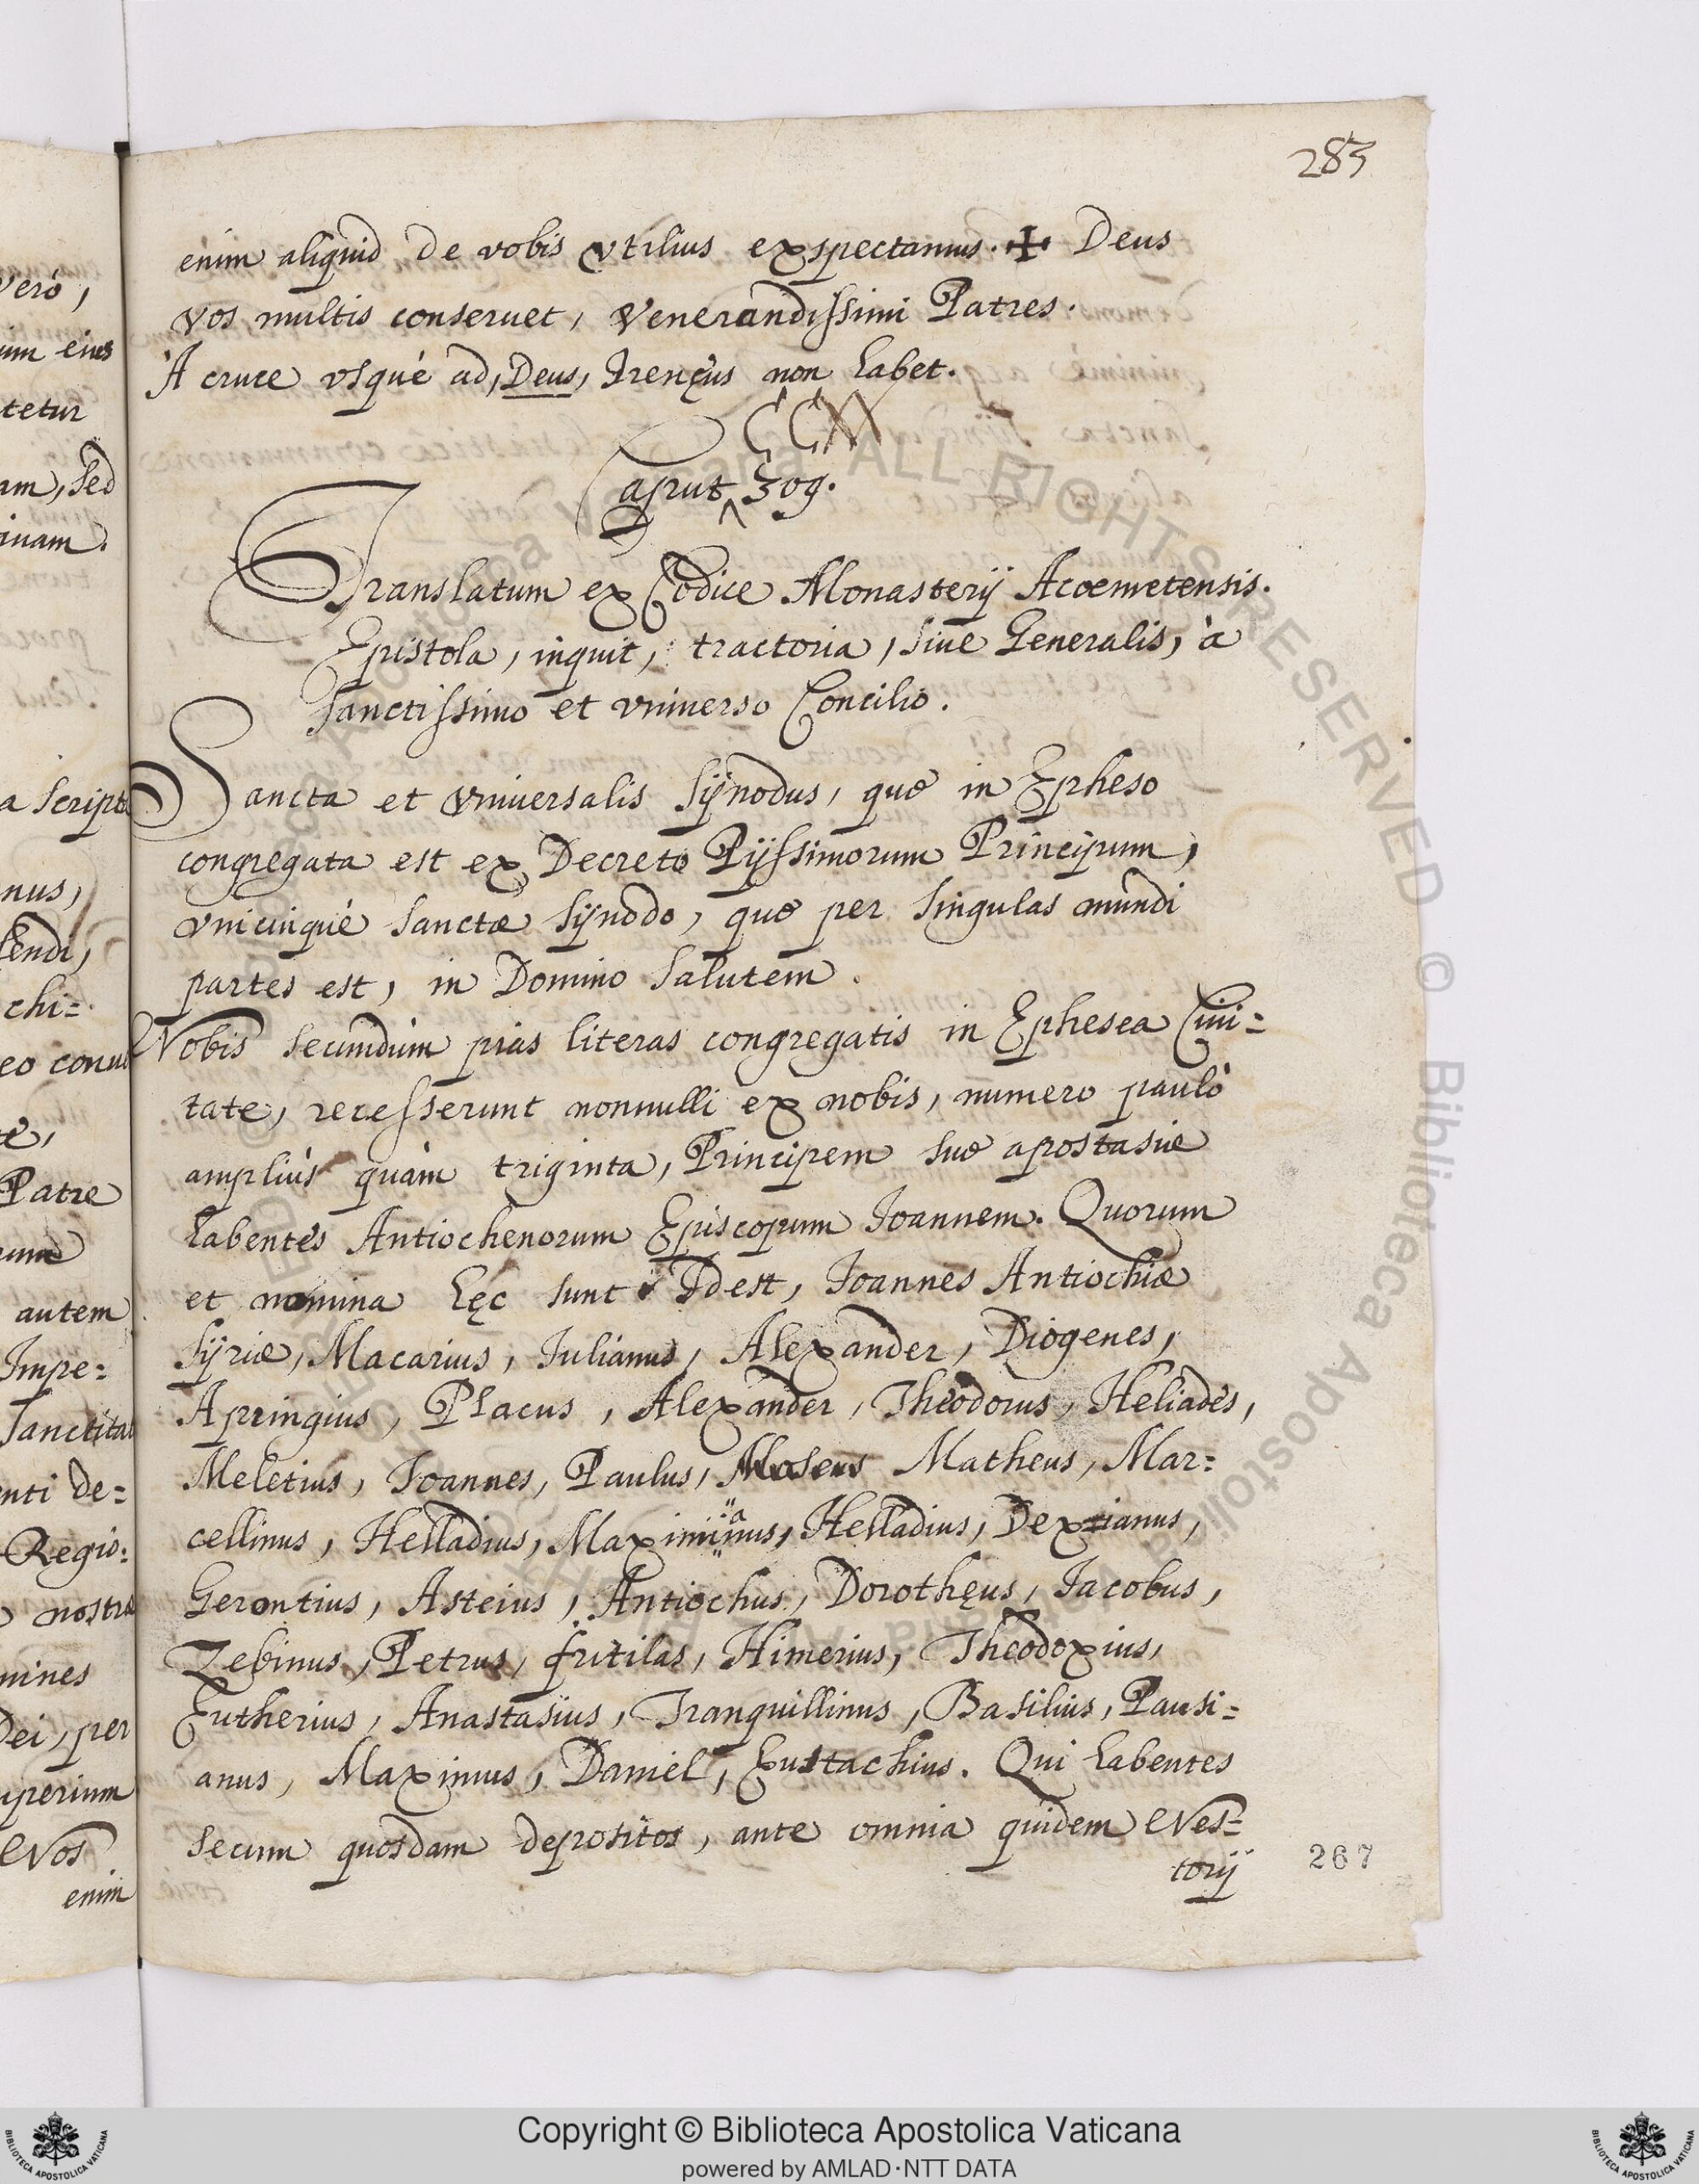 283
enim aliquid de vobis vtilius expectamus. ✠ Deus
vos multis conseruet, Venerandissimi Patres.
A cruce vsquè ad, Deus, Irenęus non habet.
CCXX
Caput 309.
Translatum ex Codice Monasterij Acoemetensis.
Epistola, inquit, tractoria, siue Generalis, à
sanctissimo et vniuerso Concilio.
Sancta et vniuersalis Synodus, quæ in Epheso
congregata est ex Decreto Pijssimorum Principum,
vnicuiquè sanctæ synodo, quæ per singulas mundi
partes est, in Domino salutem.
Nobis secundùm pias literas congregatis in Ephesea Ciui=
tate, recesserunt nonnulli ex nobis, numero paulò
ampliùs quàm triginta, Principem suæ apostasiæ
habentes Antiochenorum Episcopum Ioannem. Quorum
et nomina hęc sunt Idest, Ioannes Antiochiæ
Syriæ, Macarius, Iulianus, Alexander, Diogenes,
Apringius, Placus, Alexander, Theodorus, Heliades,
Meletius, Ioannes, Paulus, Moseus Matheus, Mar=
cellinus, Helladius, Maximianus, Helladius, Dexianus,
Gerontius, Asteius, Antiochus, Dorothęus, Iacobus,
Zebinus, Petrus, fritilas, Himerius, Theodoxius,
Eutherius, Anastasius, Tranquillinus, Basilius, Pausi=
anus, Maximus, Daniel, Eustachius. Qui habentes
secum quosdam depositos, ante omnia quidem Nes=
torij
267
verò,
eius
tetur
am, sed
inam.
a scripta
nus,
chi=
eo
Patre
autem
Impe=
sanctitas
enti de=
Regio=
nostra
mines
Dei, per
Nos
enim
© Biblioteca Apostolica Vaticana ALL RIGHTS RESERVED
Copyright © Biblioteca Apostolica Vaticana
powered by AMLAD·NTT DATA
BIBLIOTECA APOSTOLICA VATICANA
BIBLIOTECA APOSTOLICA VATICANA